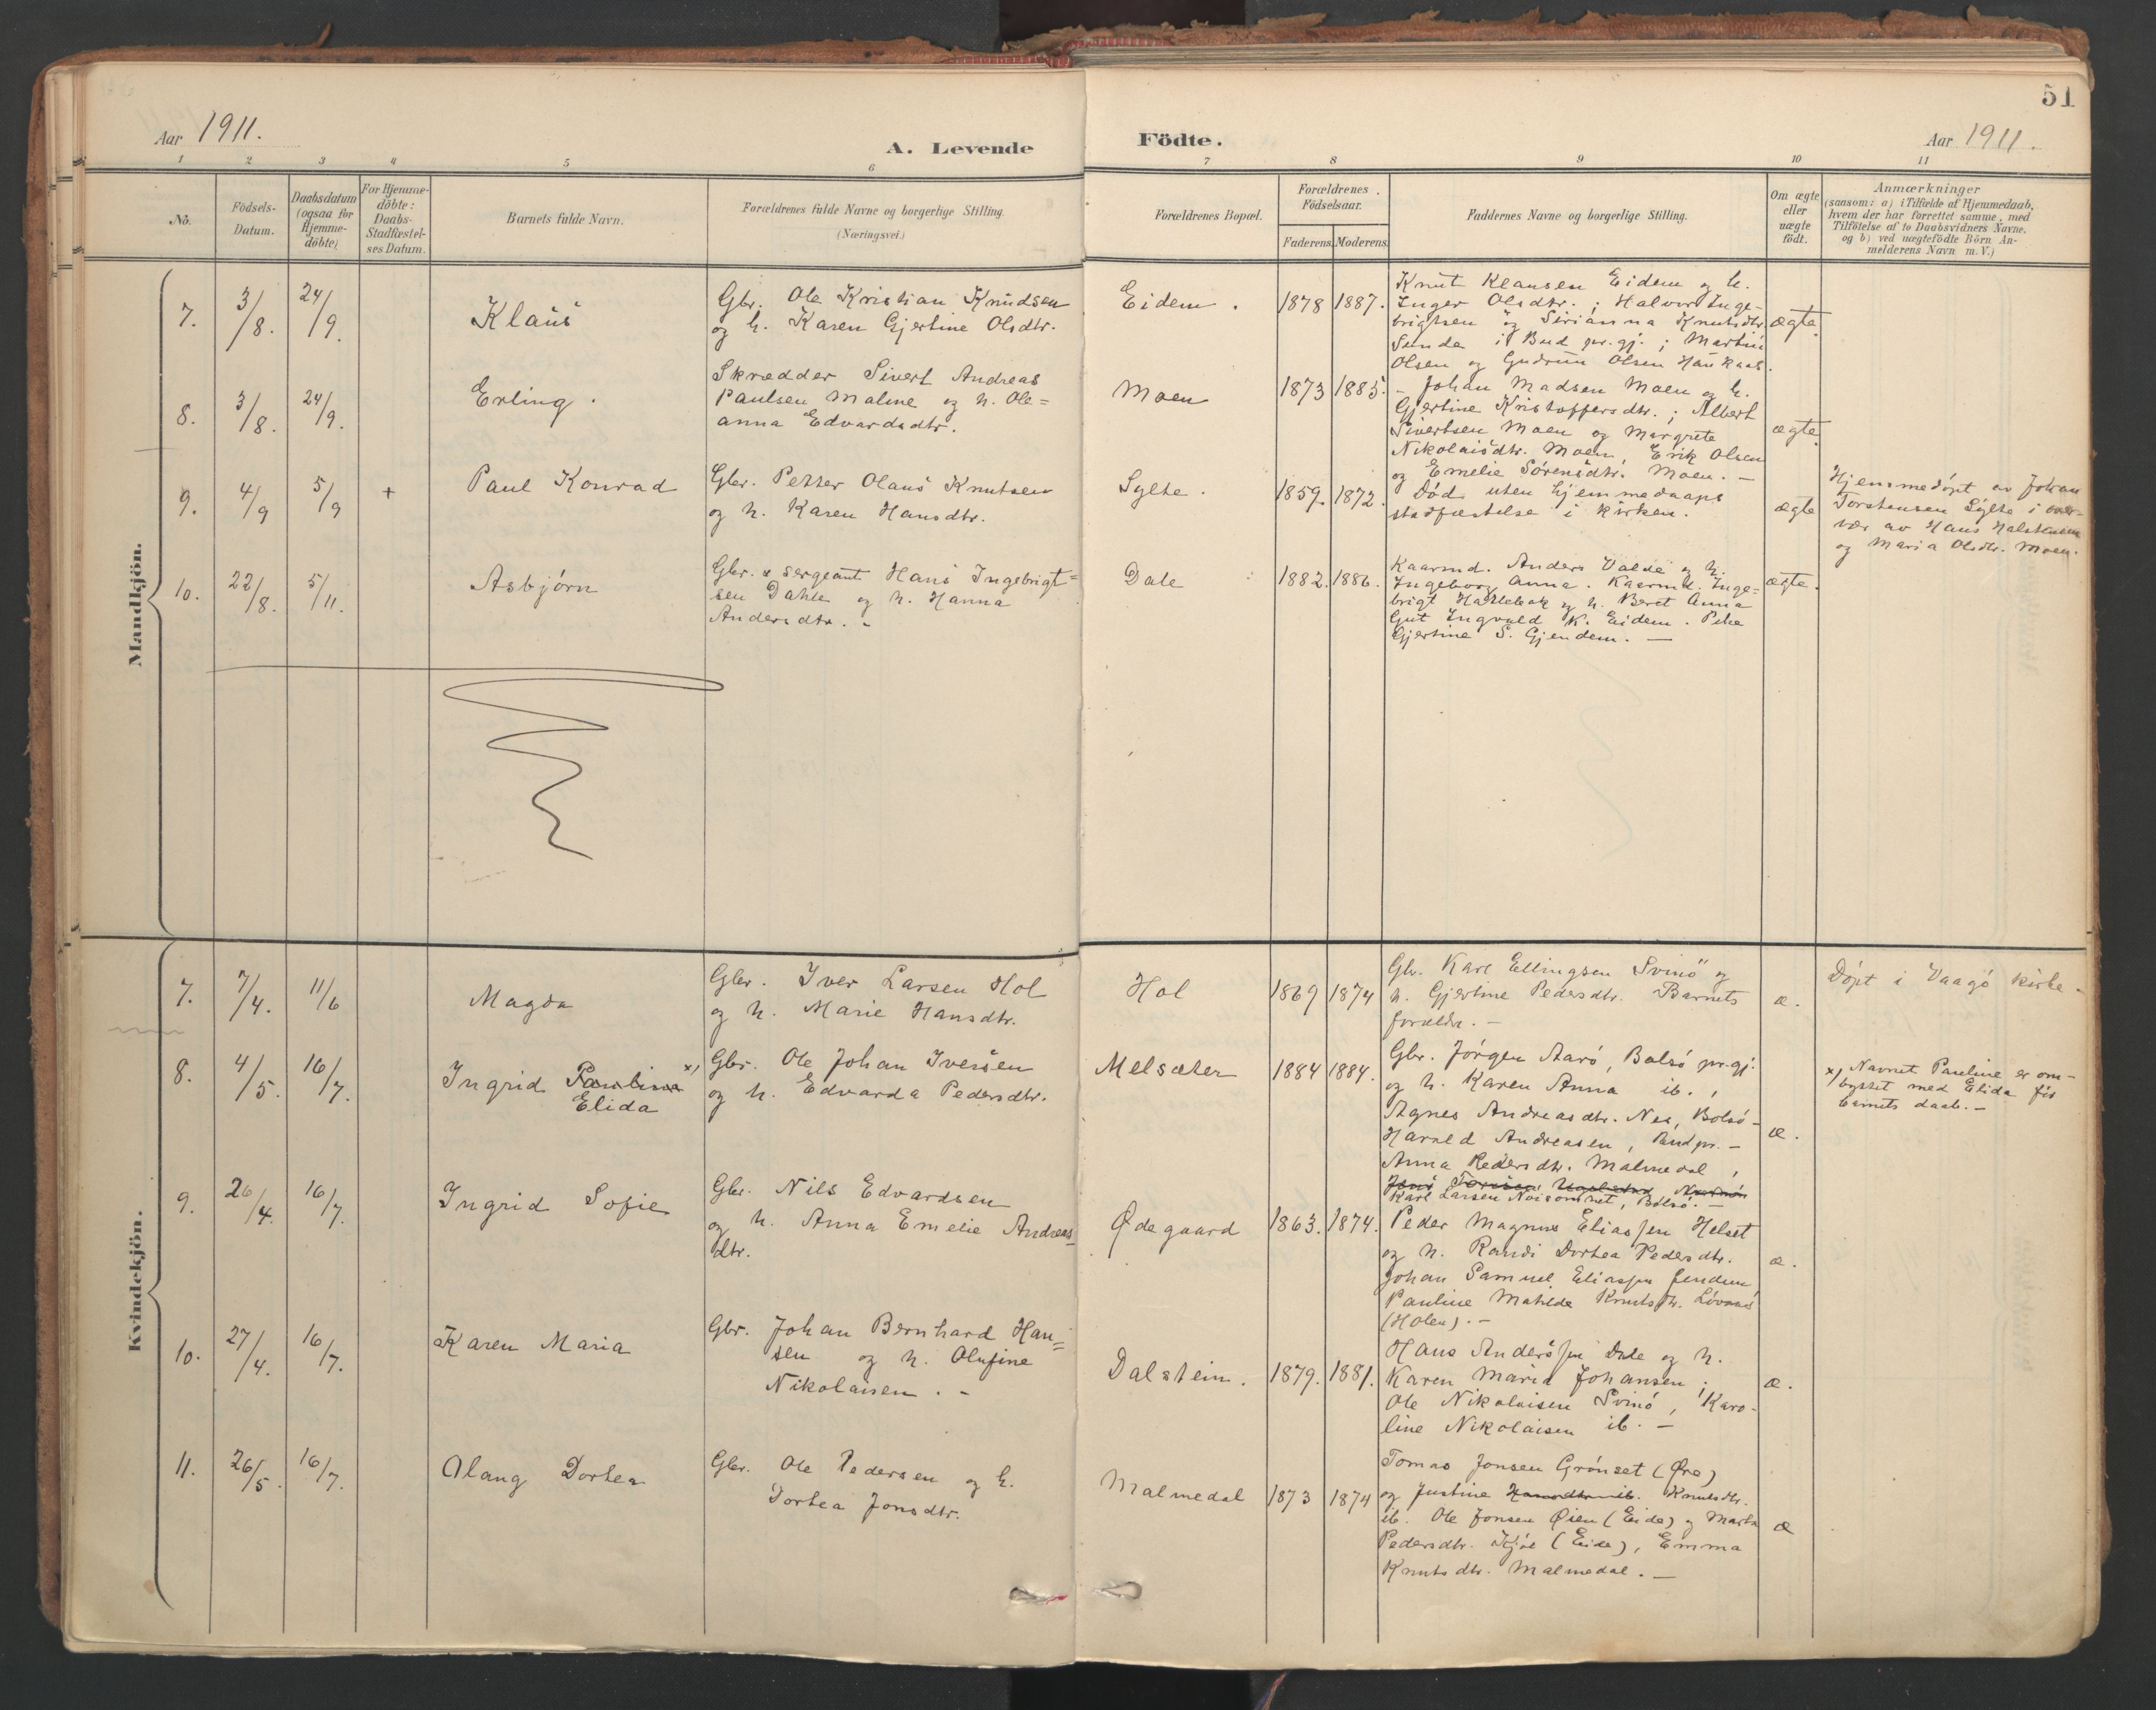 51
Aar 1911.
A. Levende
Födte.
Aar 1911.
1 2 3 4 5 6 7 8 9 10 11
No.
Födsels-
Datum.
Daabsdatum
(ogsaa for
Hjemme-
döbte)
For Hjemme-
döbte:
Daabs-
Stadfæstel-
ses Datum.
Barnets fulde Navn.
Forældrenes fulde Navne og borgerlige Stilling.
(Næringsvei.)
Forældrenes Bopæl.
Forældrenes
Födselsaar.
Faderens. Moderens.
Faddernes Navne og borgerlige Stilling.
Om ægte
eller
uægte
födt.
Anmærkninger
(saasom: a) i Tilfælde af Hjemmedaab,
hvem der har forrettet samme, med
Tilföielse af to Daabsvidners Navne.
og b) ved uægtefödte Börn An-
melderens Navn m. V.)
Mandkjön.
7. 3/8. 24/9. Klaus
Gbr. Ole Kristian Knudsen
og h. Karen Gjertine Olsdtr.
Eidem. 1878 1887.
Knut Klausen Eidem og h.
Inger Olsdtr.; Halvor Inge-
brigtsen og Sirianna Knutsdtr.
Sunde i Bud pr.gj.; Martin
Olsen og Gudrun Olsen Haukaas.
ægte.
8. 3/8. 24/9. Erling.
Skrædder Sivert Andreas
Paulsen Malme og h. Ole=
anna Edvardsdtr.
Moen 1873 1885.
- Johan Madsen Moen og h.
Gjertine Kristoffersdtr.; Albert
Sivertsen Moen og Margrete
Nikolaisdtr. Moen, Erik Olsen
og Emelie Sörensdtr. Moen. -
ægte.
9. 4/9 5/9 + Paul Konrad
Gbr. Petter Olaus Knutsen
og h. Karen Hansdtr.
Sylte. 1859. 1872.
Död uten hjemmedaaps
stadfæstelse i kirken.
ægte
Hjemmedöpt av Johan
Torstensen Sylte i over-
vær av Hans Halstensen
og Maria Olsdtr. Moen.
10. 22/8. 5/11. Asbjörn
Gbr. & sergeant Hans Ingebrigt=
sen Dahle og h. Hanna
Andersdtr. -
Dale 1882. 1886.
Kaarmd. Anders Valde og h.
Ingeborg Anna. Kaarmd. Inge=
brigt Haslebak og h. Beret Anna
Gut Ingvald K. Eidem. Pike
Gjertine S. Gjendem. -
ægte.
Kvindekjön.
7. 7/4. 11/6 Magda
Gbr. Iver Larsen Hol
og h. Marie Hansdtr.
Hol 1869 1874
Gbr. Karl Ellingsen Svinö og
h. Gjertine Pedersdtr. Barnets
forældr. -
æ.
Döpt i Vaagö kirke -
8. 4/5. 16/7. Ingrid Paulina x)
Elida
Gbr. Ole Johan Iversen
og h. Edvarda Pedersdtr.
Melsæter 1884 1884.
Gbr. Jörgen Aarö, Bolsö pr.gj.
og h. Karen Anna ib.,
Agnes Andreasdtr. Nes, Bolsö -
Harald Andreasen, Bud pr. -
Anna Pedersdtr. Malmedal,
Karl Larsen Bolsö. -
æ.
x) Navnet Pauline er om-
byttet med Elida för
barnets daab. -
9. 26/4. 16/7. Ingrid Sofie
Gbr. Nils Edvardsen
og h. Anna Emelie Andreas-
dtr.
Ödegaard 1863. 1874.
Peder Magnus Eliassen Helset
og h. Randi Dortea Pedersdtr.
Johan Samuel Eliassen
Pauline Matilde Knutsdtr.
(Holen). -
æ.
10. 27/4. 16/7. Karen Maria
Gbr. Johan Bernhard Han=
sen og h. Olufine
Nikolaisen. -
Dalstein. 1879. 1881.
Hans Anderssen Dale og h.
Karen Maria Johansen;
Ole Nikolaisen Svinö, Karo-
line Nikolaisen ib. -
æ.
11. 26/5. 16/7. Olaug Dortea
Gbr. Ole Pedersen og h.
Dortea Jonsdtr.
Malmedal 1873 1874
Tomas Jonsen Grönset (Öre)
og Justine Hansdtr. ib. Knutsdtr.
ib. Ole Jonsen Öien (Eide) og Marta
Pedersdtr. Kjöl (Eide), Emma
Knutsdtr. Malmedal. -
æ